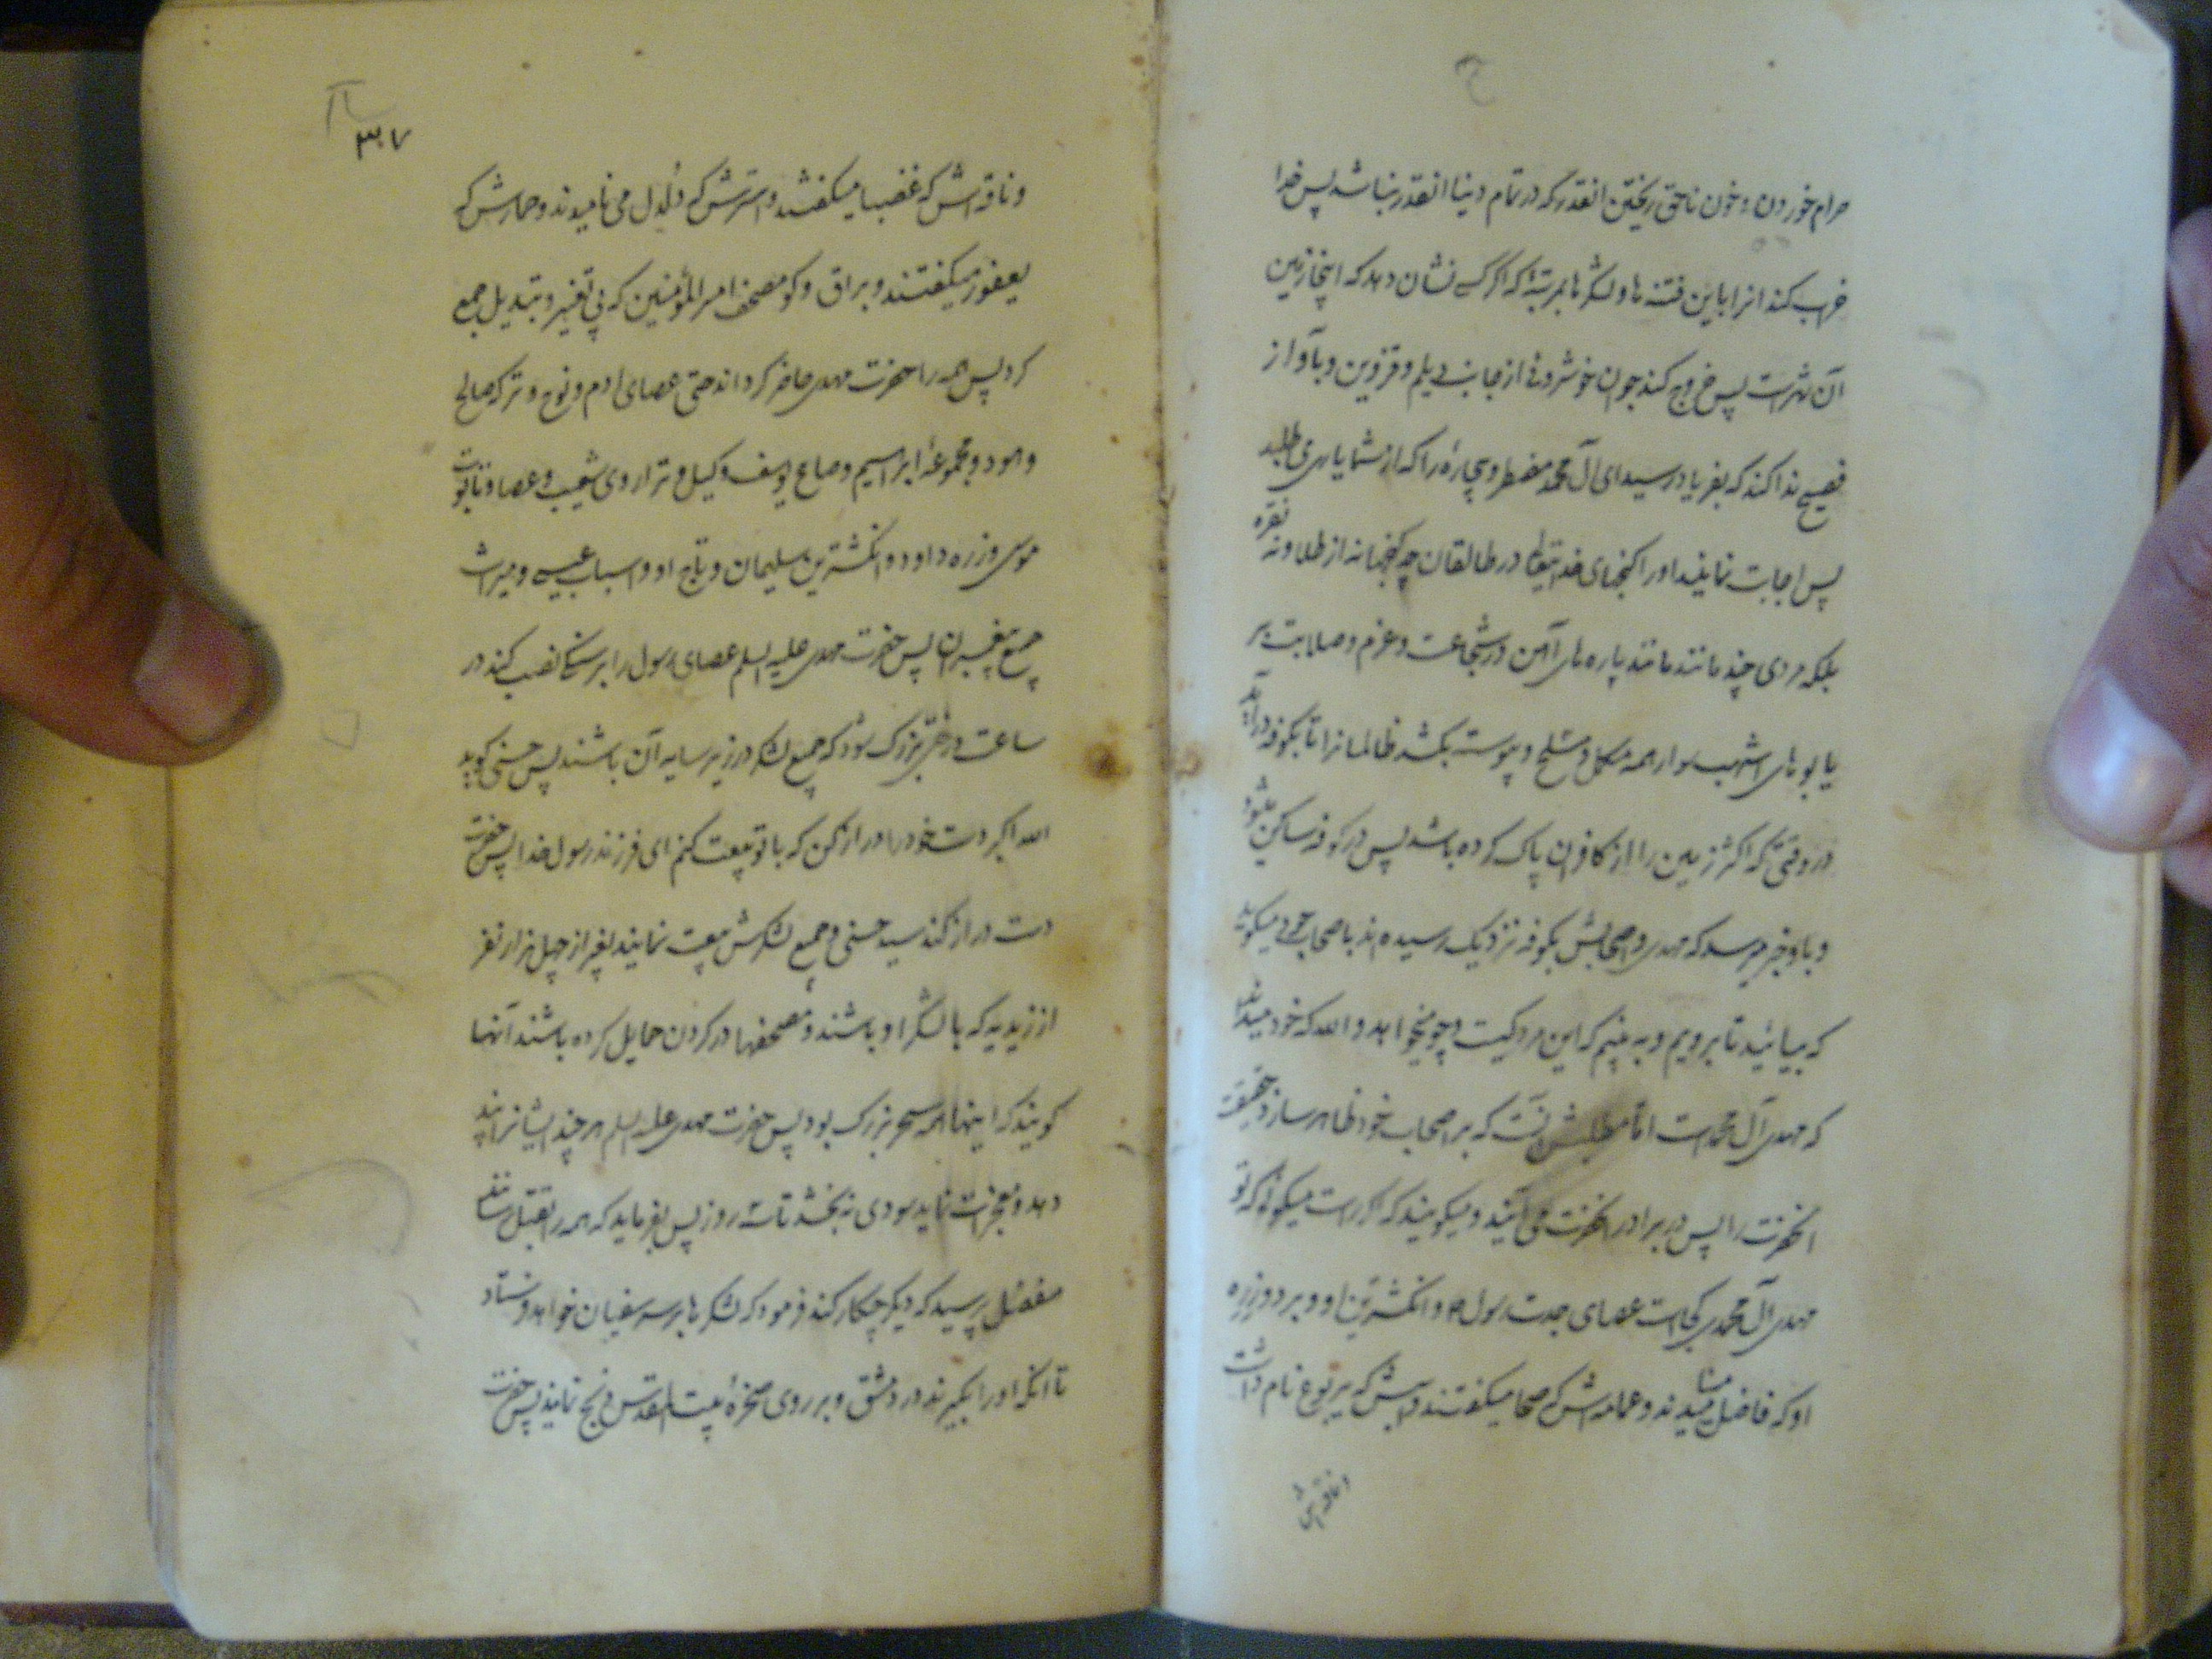 حرام خوردن و خون ناحق ریختن انقدر که در تمام دنیا انقدر نباشد پس خدا
خراب کند انرا باین فتنه ها و لشکر ها بمرتبهٔ که اگر کسی نشان دهد که اینجا زمین
آن شهر است پس خروج کند جوان خوشروئی از جانب دیلم و قزوین و بآواز
فصیح ندا کند که بفریاد رسید ای آل محمد مضطر و بیچاره را که از شما یاری می طلبد
پس اجابت نمایند او را گنجهای خدایتعالی در طالقان چه گنجها نه از طلا و نه نقره
بلکه مردی چند مانند مانند پاره های آهن در شجاعت و عزم و صلابت بر
یابوهای اشهب سوار همه مکمل و مسلح و پیوسته بکشد ظالمانرا تا بکوفه در آید
در وقتی که اکثر زمین را از کافران پاک کرده باشد پس در کوفه ساکن شود
و باو خبر میرسد که مهدی و اصحابش بکوفه نزدیک رسیده اند باصحاب میگوید
که بیائید تا برویم و به بینیم که این مرد کیست و چه میخواهد و الله که خود میداند
که مهدی آل محمد است اما مطلبش آنست که بر اصحاب خود ظاهر سازد حقیقت
انحضرت را پس در برابر انحضرت می آیند و میگویند که اگر راست میگوئی که تو
مهدی آل محمدی کجاست عصای جدت رسول و انگشترین او و برد و زره
او که فاضل مینامیدند و عمامه اش که سحاب میگفتند و اسبش که یربوع نام داشت
و ناقه اش
۳۰۷
و ناقه اش که غضبا میگفتند و استرش که دلدل می نامیدند و حمارش که
یعفور میگفتند و براق و کو مصحف امیر المؤمنین که بی تغییر و تبدیل جمع
کرد پس همه را حضرت مهدی حاضر گرداند حتی عصای ادم و نوح و ترکه صالح
و هود و مجموعهٔ ابراهیم و صاع یوسف و کیل و ترازوی شعیب و عصا و تابوت
موسی و زره داود و انگشترین سلیمان و تاج او و اسباب عیسی و میراث
جمیع پیغمبران پس حضرت مهدی علیه السلم عصای رسول را بر سنگی نصب کند در
ساعت درختی بزرگ شود که جمیع لشکر در زیر سایه آن باشند پس حسنی گوید
الله اکبر دست خود را دراز کن که با تو بیعت کنم ای فرزند رسول خدا پس حضرت
دست دراز کند سید حسنی و جمیع لشکرش بیعت نمایند بغیر از چهل هزار نفر
از زیدیه که با لشکر او باشند و مصحفها در گردن حمایل کرده باشند آنها
گویند که اینها همه سحر بزرگ بود پس حضرت مهدی علیه السلم هر چند ایشانرا پند
دهد و معجزات نماید سودی نه بخشد تا سه روز پس بفرماید که همه را بقتل رسانند
مفضل پرسید که دیگر چکار کند فرمود که لشکرها بر سر سفیان خواهد فرستاد
تا انکه او را بگیرند در دمشق و بر روی صخرهٔ بیت المقدس ذبح نمایند پس حضرت